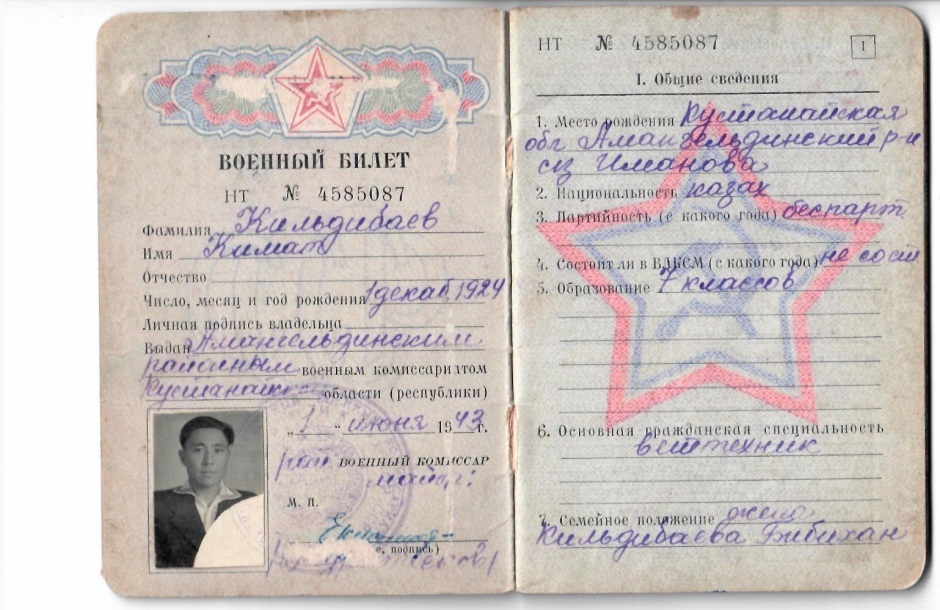 ВОЕННЫЙ БИЛЕТ
НТ № 4585087
Фамилия Кильдибаев
Имя Кимат
Отчество
Число, месяц и год рождения 1 декаб 1924
Личная подпись владельца
Выдан Амангельдинским
районым военным комиссариатом
Кустанайской области (республики)
„ 1 “ июня 1943 г.
рай ВОЕННЫЙ КОМИССАР
майор
М. П.
подпись)
НТ № 4585087
1
I. Общие сведения
1. Место рождения Кустанайская
обл Амангельдинский р-н
сц Иманова
2. Национальность казах
3. Партийность (с какого года) беспарт
4. Состоит ли в ВЛКСМ (с какого года) не сост
5. Образование 7 классов
6. Основная гражданская специальность
ветехник
7. Семейное положение жена
Кильдибаева Бибихан